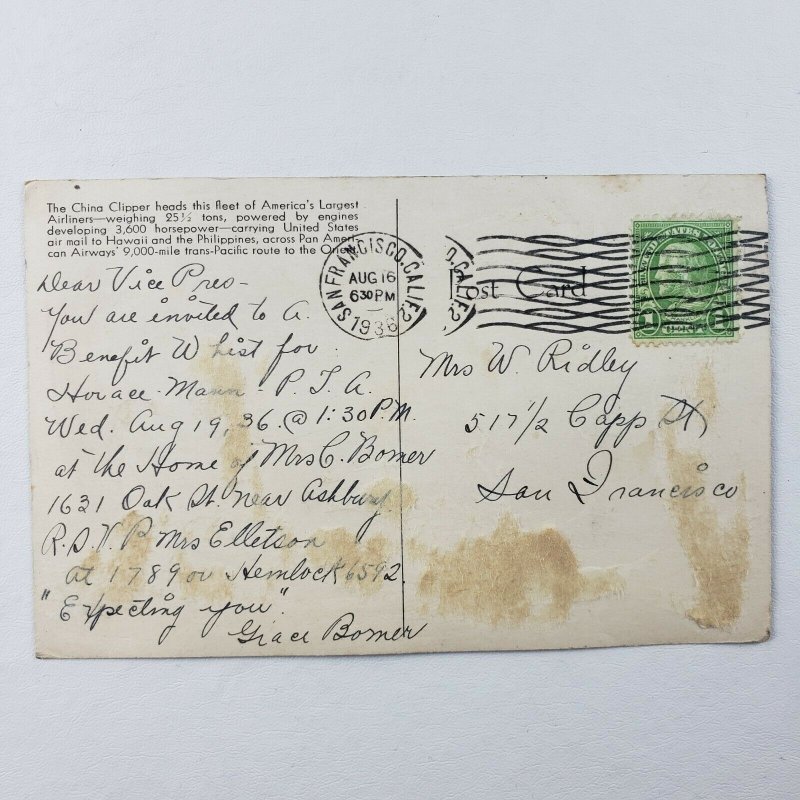 The China Clipper heads this fleet of America's Largest
Airliners—weighing 25½ tons, powered by engines
developing 3,600 horsepower—carrying United States
air mail to Hawaii and the Philippines, across Pan Ameri-
can Airways' 9,000-mile trans-Pacific route to the Orient.
SAN FRANCISCO, CALIF. 2
AUG 16
6 30 PM
1936
O, CALIF. 2
Post Card
1 1
Dear Vice Pres-
You are invited to a
Benefit Whist for
Horace-Mann-P.T.A.
Wed. Aug 19, 36. @ 1:30 P.M.
at the Home of Mrs C. Bomer
1631 Oak St. near Ashbury
R.S.V.P Mrs Elletson
at 1789 or Hemlock 6592.
"Expecting you".
Grace Bomer
Mrs W. Ridley
517 1/2 Capp St
San Francisco